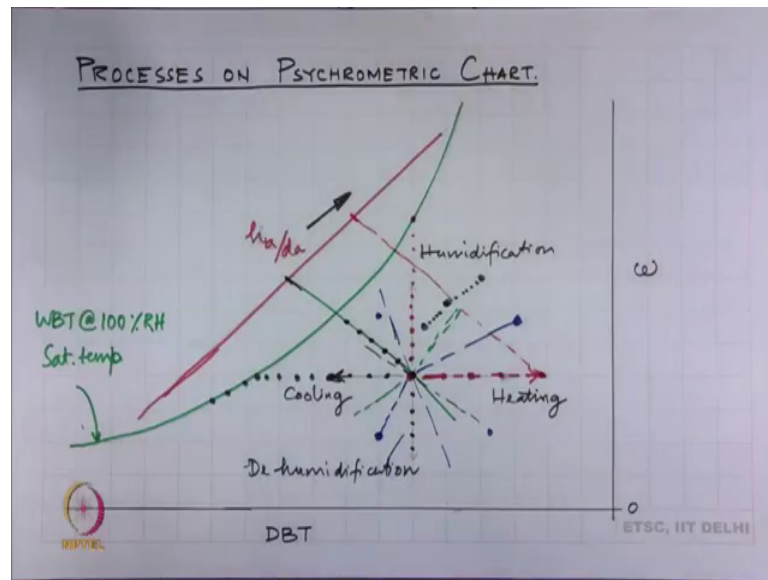 PROCESSES ON PSYCHROMETRIC CHART.
ha/da
Humidification
ω
WBT@100%RH
Sat. temp
Cooling
Heating
Dehumidification
0
DBT
NPTEL
ETSC, IIT DELHI